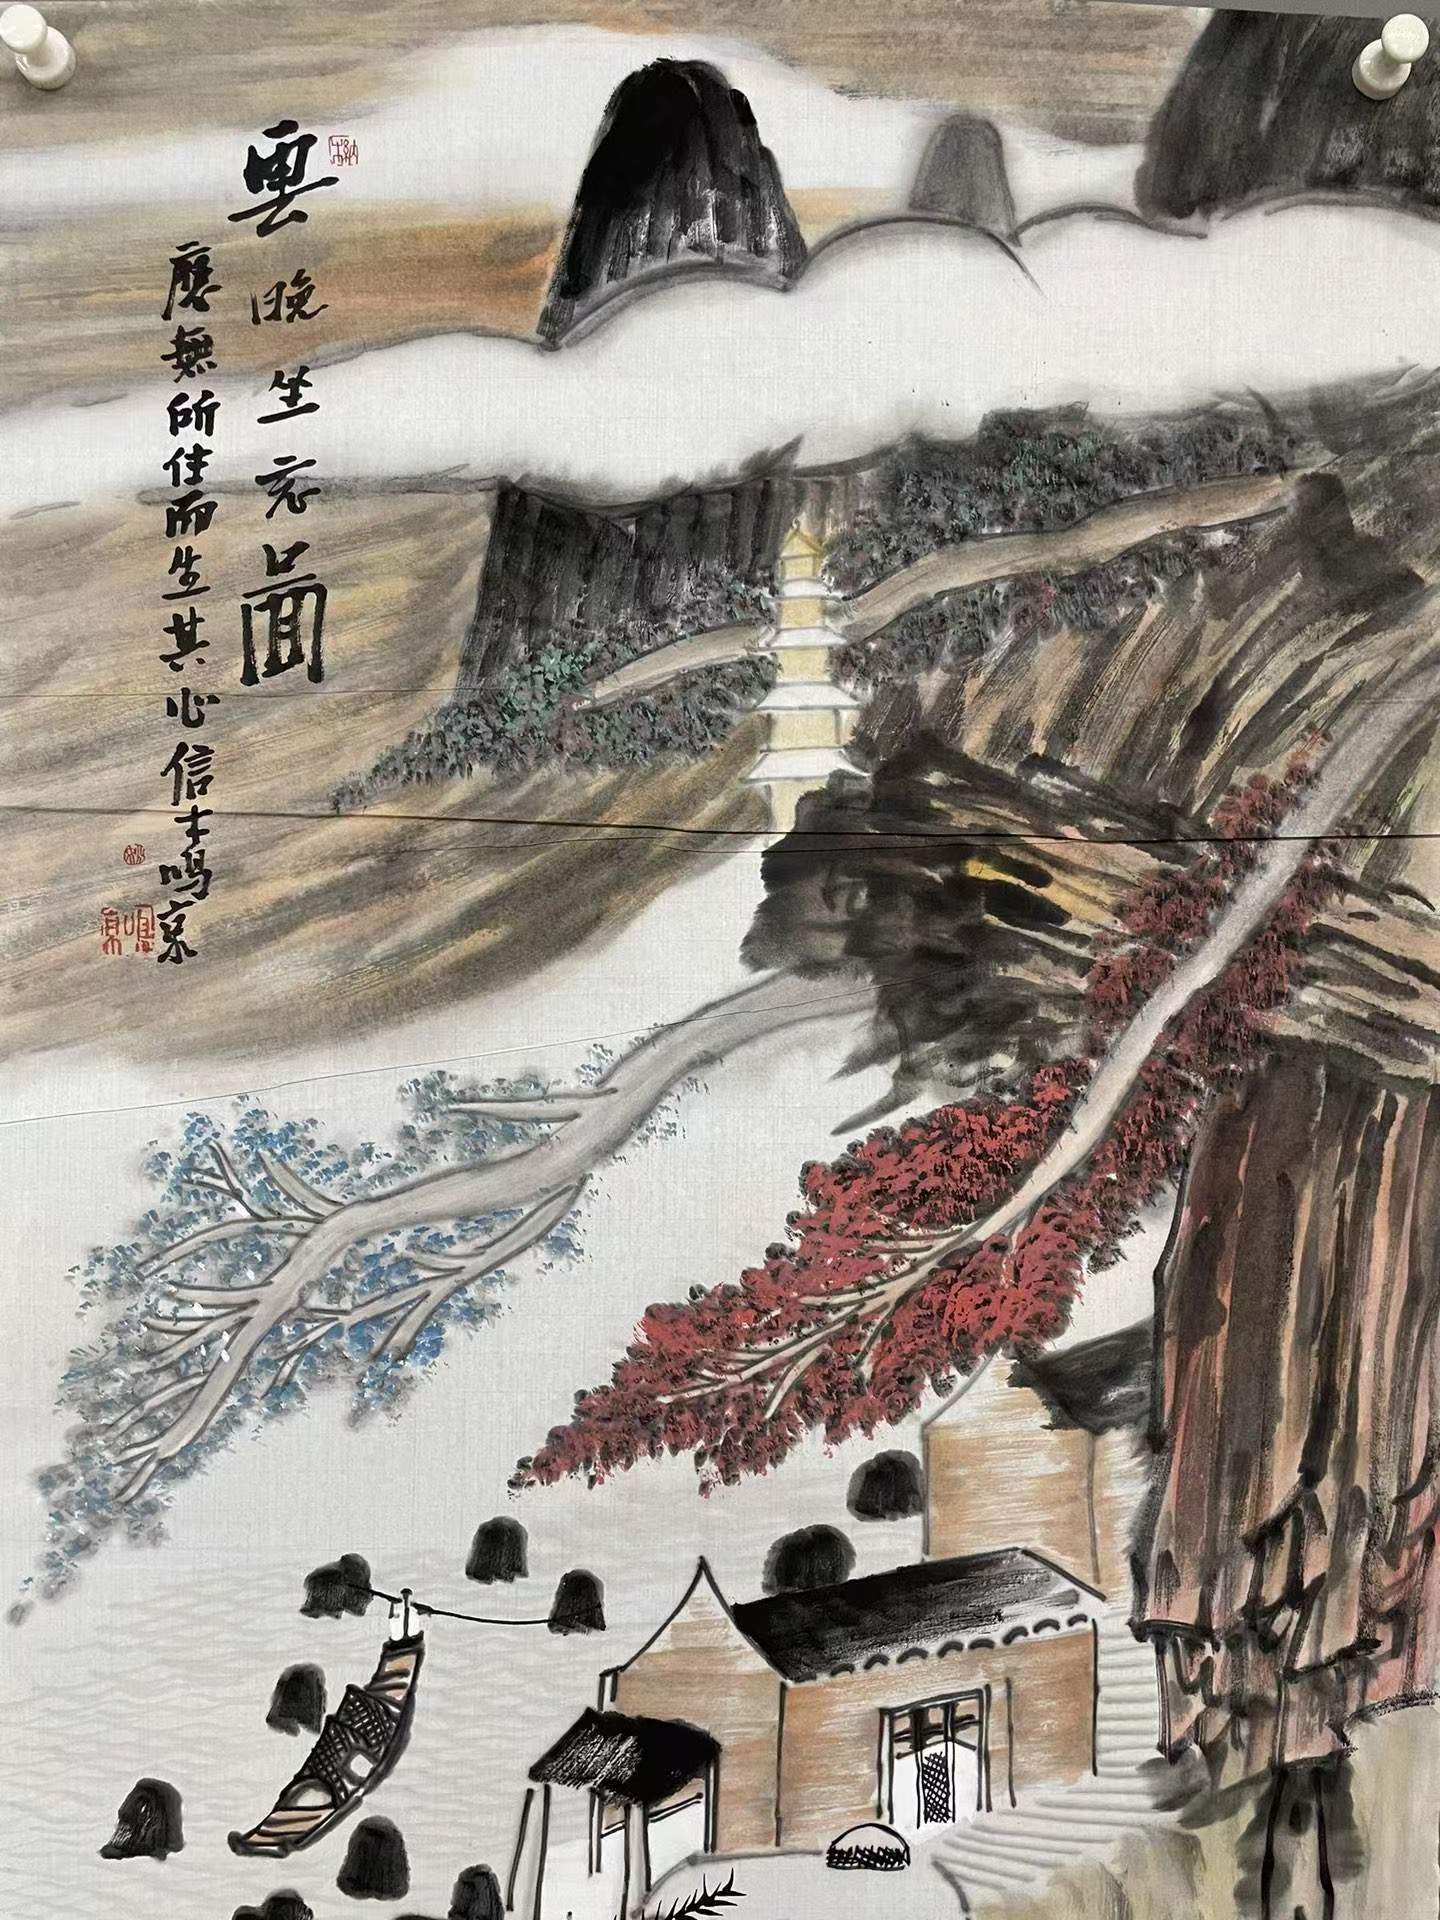 雲晚坐忘圖
應無所住而生其心信士鳴泉